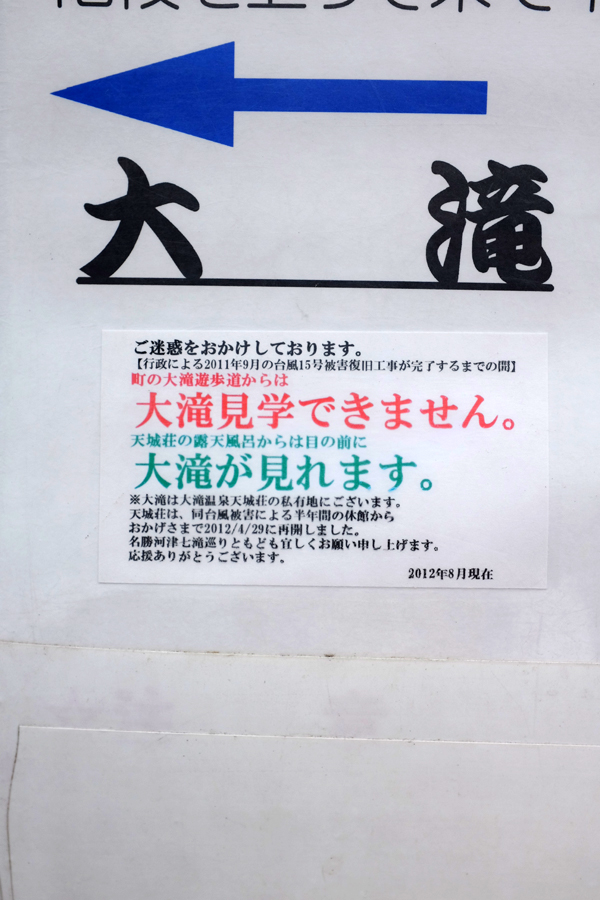 大滝
ご迷惑をおかけしております。
【行政による2011年9月の台風15号被害復旧工事が完了するまでの間】
町の大滝遊歩道からは
大滝見学できません。
天城荘の露天風呂からは目の前に
大滝が見れます。
※大滝は大滝温泉天城荘の私有地にございます。
天城荘は、同台風被害による半年間の休館から
おかげさまで2012/4/29に再開しました。
名勝河津七滝巡りともども宜しくお願い申し上げます。
応援ありがとうございます。
2012年8月現在